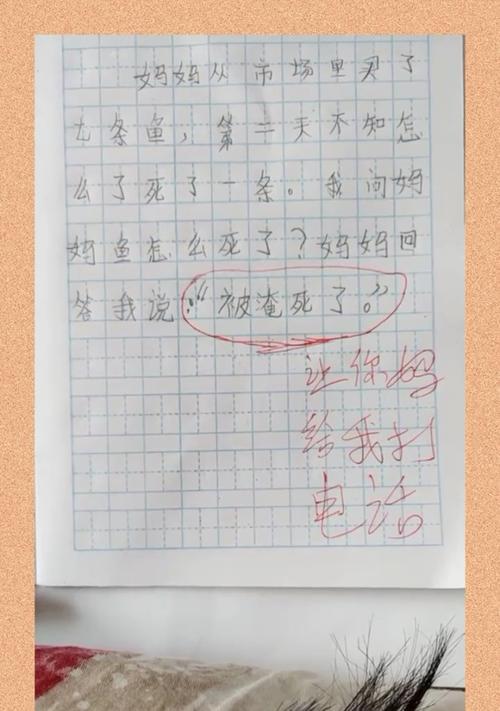 妈妈从市场里买了
七条鱼，第二天不知怎
么了死了一条。我问妈
妈鱼怎么死了？妈妈回
答我说：“被淹死了。”
让你妈
给我打
电话